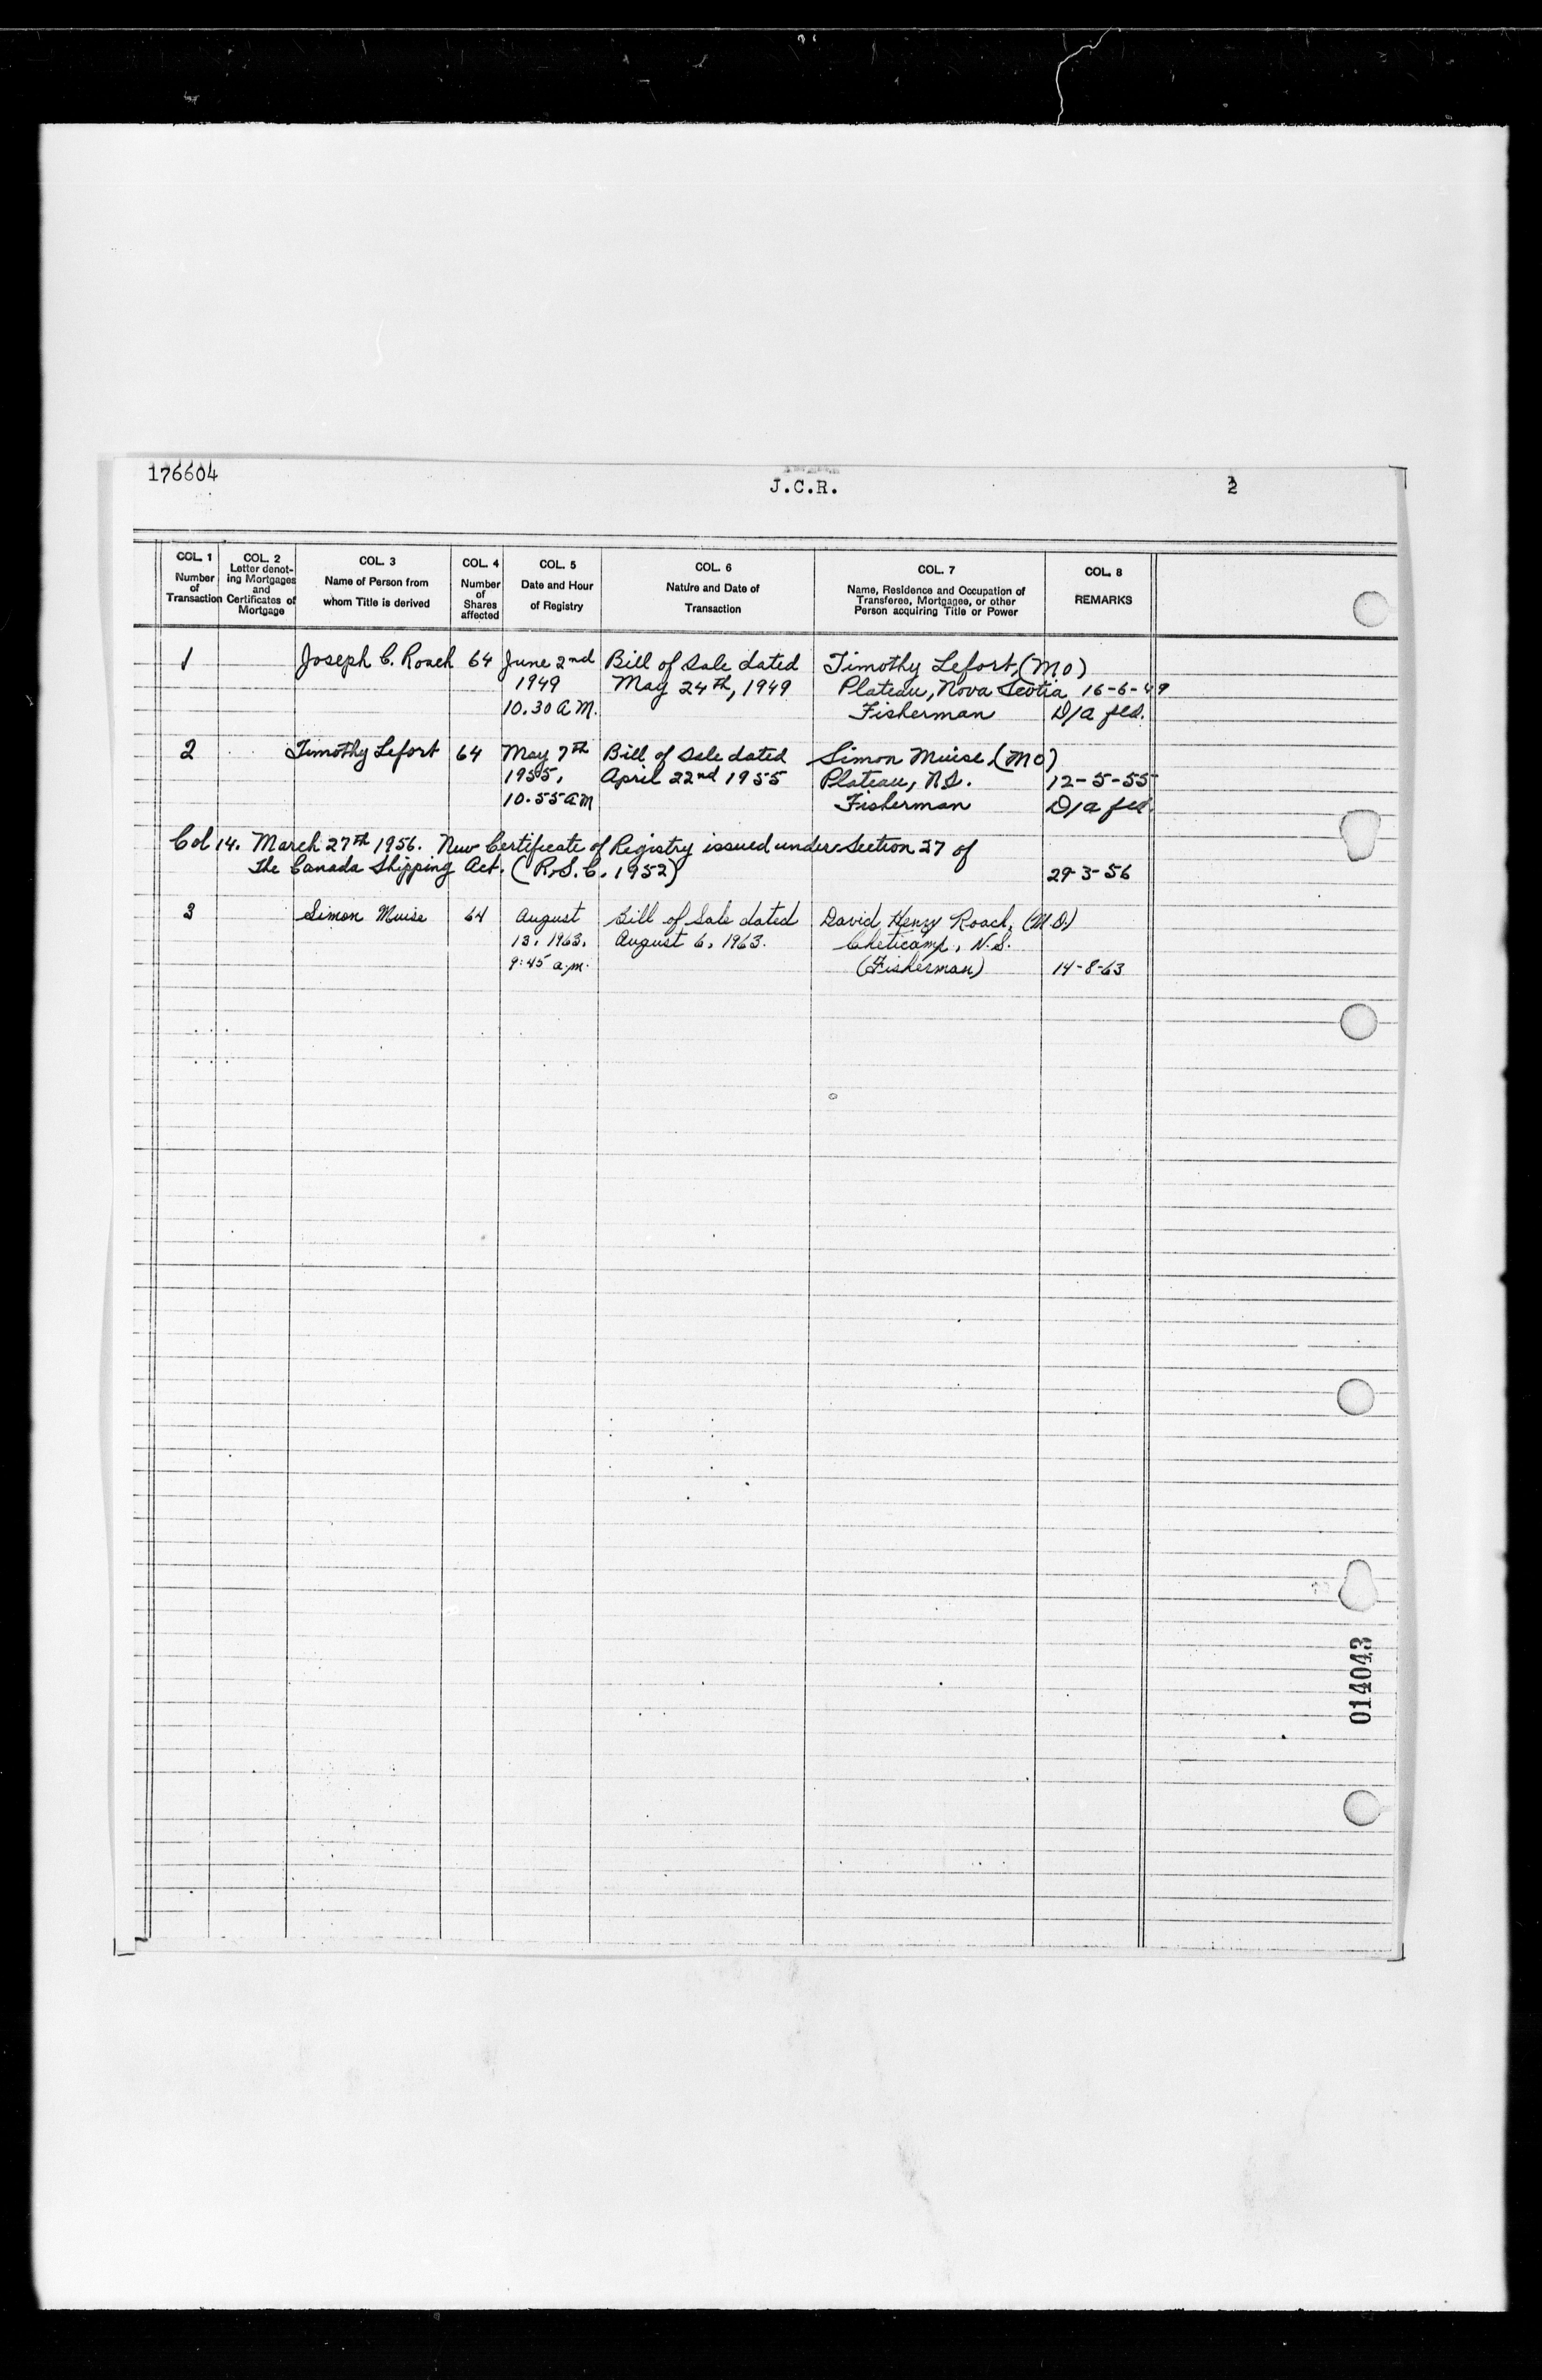 176604
J.C.R.
2
COL. 1 Number of Transaction
COL. 2 Letter denoting Mortgages and Certificates of Mortgage
COL. 3 Name of Person from whom Title is derived
COL. 4 Number of Shares affected
COL. 5 Date and Hour of Registry
COL. 6 Nature and Date of Transaction
COL. 7 Name, Residence and Occupation of Transferee, Mortgagee, or other Person acquiring Title or Power
COL. 8 REMARKS
1 Joseph C. Roach 64 June 2nd Bill of Sale dated Timothy Lefort, (M.O)
1949 May 24th, 1949 Plateau, Nova Scotia 16-6-49
10.30 A.M. Fisherman D/a fld.
2 Timothy Lefort 64 May 7th Bill of Sale dated Simon Muise, (MO)
1955, April 22nd 1955 Plateau, N.S. 12-5-55
10.55 AM Fisherman D/a fld.
Col 14. March 27th 1956. New Certificate of Registry issued under Section 27 of
The Canada Shipping Act. (R.S.C. 1952) 29-3-56
3 Simon Muise 64 August Bill of Sale dated David Henry Roach, (M.O.)
13, 1963, August 6, 1963. Cheticamp, N.S.
9:45 a.m. (Fisherman) 14-8-63
014043